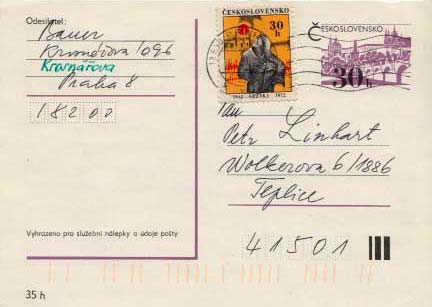 Odesílatel:
Bauer
Krumářova 1096
Kramářova
Praha 8
18200
ČESKOSLOVENSKO
30
h
1942 - LEŽÁKY - 1972
ČESKOSLOVENSKO
30h
Pan
Petr Linhart
Wolkerova 6/1886
Teplice
41501
Vyhrazeno pro služební nálepky a údaje pošty
35 h